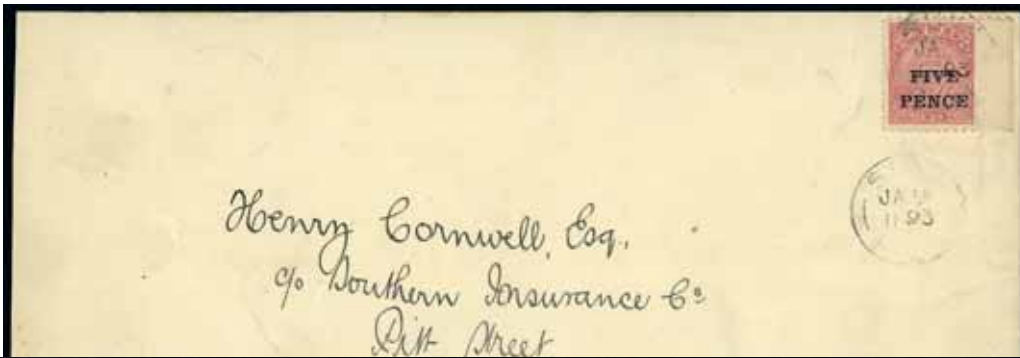 JA
93
FIVE
PENCE
JA
93
Henry Cornwell, Esq.
c/o Southern Insurance Co
Pitt Street